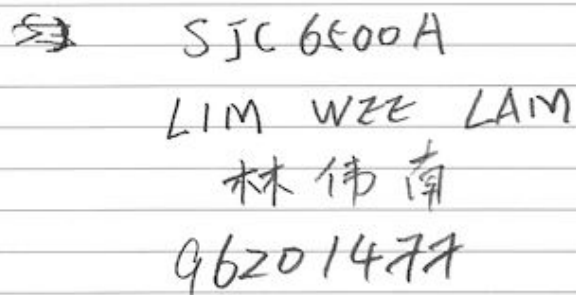 SJC 6500A
LIM WEE LAM
林伟南
96201477